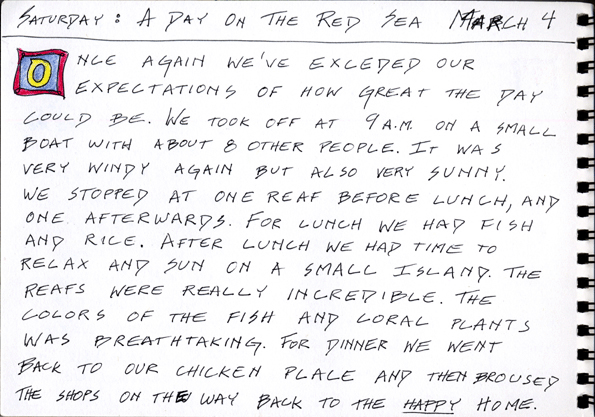 SATURDAY: A DAY ON THE RED SEA MARCH 4
ONCE AGAIN WE'VE EXCEDED OUR
EXPECTATIONS OF HOW GREAT THE DAY
COULD BE. WE TOOK OFF AT 9 A.M. ON A SMALL
BOAT WITH ABOUT 8 OTHER PEOPLE. IT WAS
VERY WINDY AGAIN BUT ALSO VERY SUNNY.
WE STOPPED AT ONE REAF BEFORE LUNCH, AND
ONE AFTERWARDS. FOR LUNCH WE HAD FISH
AND RICE. AFTER LUNCH WE HAD TIME TO
RELAX AND SUN ON A SMALL ISLAND. THE
REAFS WERE REALLY INCREDIBLE. THE
COLORS OF THE FISH AND CORAL PLANTS
WAS BREATHTAKING. FOR DINNER WE WENT
BACK TO OUR CHICKEN PLACE AND THEN BROUSED
THE SHOPS ON THE WAY BACK TO THE HAPPY HOME.